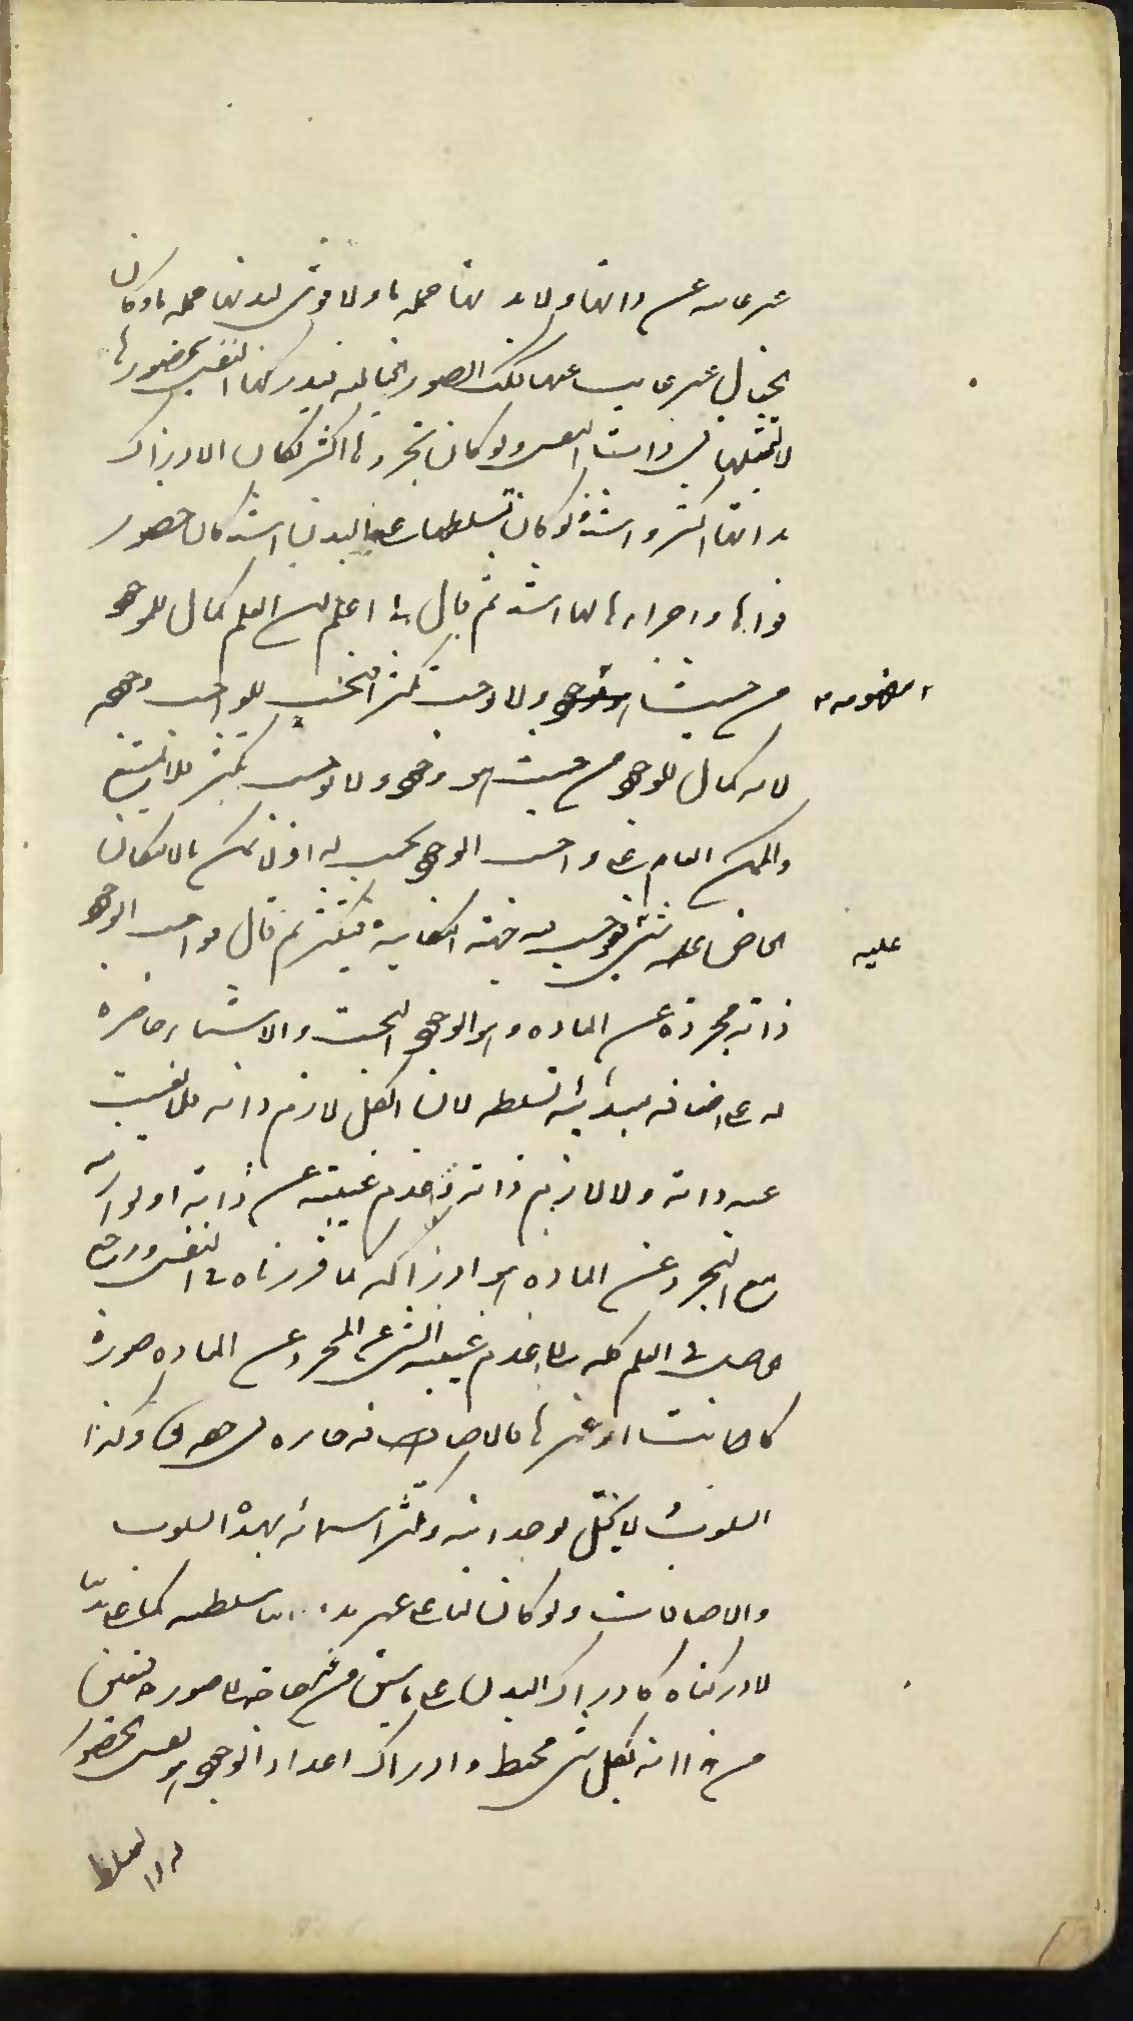 غير غائبه عن ذاتها ولا بدنها جمله ما ولا قوى لبدنها جمله ما وكما ان
الخيال غير غايب عنها فكذلك الصور الخياليه فتدركها النفس لحضورها
لا لتمثلها في ذات النفس ولو كان تجردها اكثر لكان الادراك
بذاتها اكثر واشد ولو كان تسلطها على البدن اشد كان حضور
قواها واجزائها لها اشد ثم قال لي اعلم ان العلم كمال للوجود
من حيث ولا يوجب تكثرا فيجب للواجب وجوده
مفهومه
لانه كمال للوجود من حيث هو وجود ولا يوجب تكثر فلا يمتنع
والممكن العام على واجب الوجود يجب له اذ لا يمكن بالامكان
الخاص عليه شي فيوجب فيه جهة امكانية فيتكثر ثم قال فواجب الوجود
عليه
ذاته مجردة عن الماده وهو الوجود البحت والاشياء حاضرة
له على اضافه مبدائيه تسلطه لان الكل لازم ذاته فلا تغيب
عنه ذاته ولا لازم ذاته وعدم غيبته عن ذاته او لوازمه
مع التجرد عن الماده هو ادراكه كما قررناه في النفس ورجع
الحاصل في العلم كله الى عدم غيبة الشي عن المجرد عن الماده صورة
كانت او غيرها فالاضافه جائزه في حقه وكذا
السلوب لا يخل بوحدانيته وتكثر اسمائه بهذه السلوب
والاضافات ولو كان لنا على غير بدننا سلطنه كما على بدننا
لادركناه كادراك البدن على ما سبق من غير حاجه الى صورة فتعين
من هذا انه بكل شي محيط وادراك اعداد الوجود هو نفس الحضور
له والتسلط